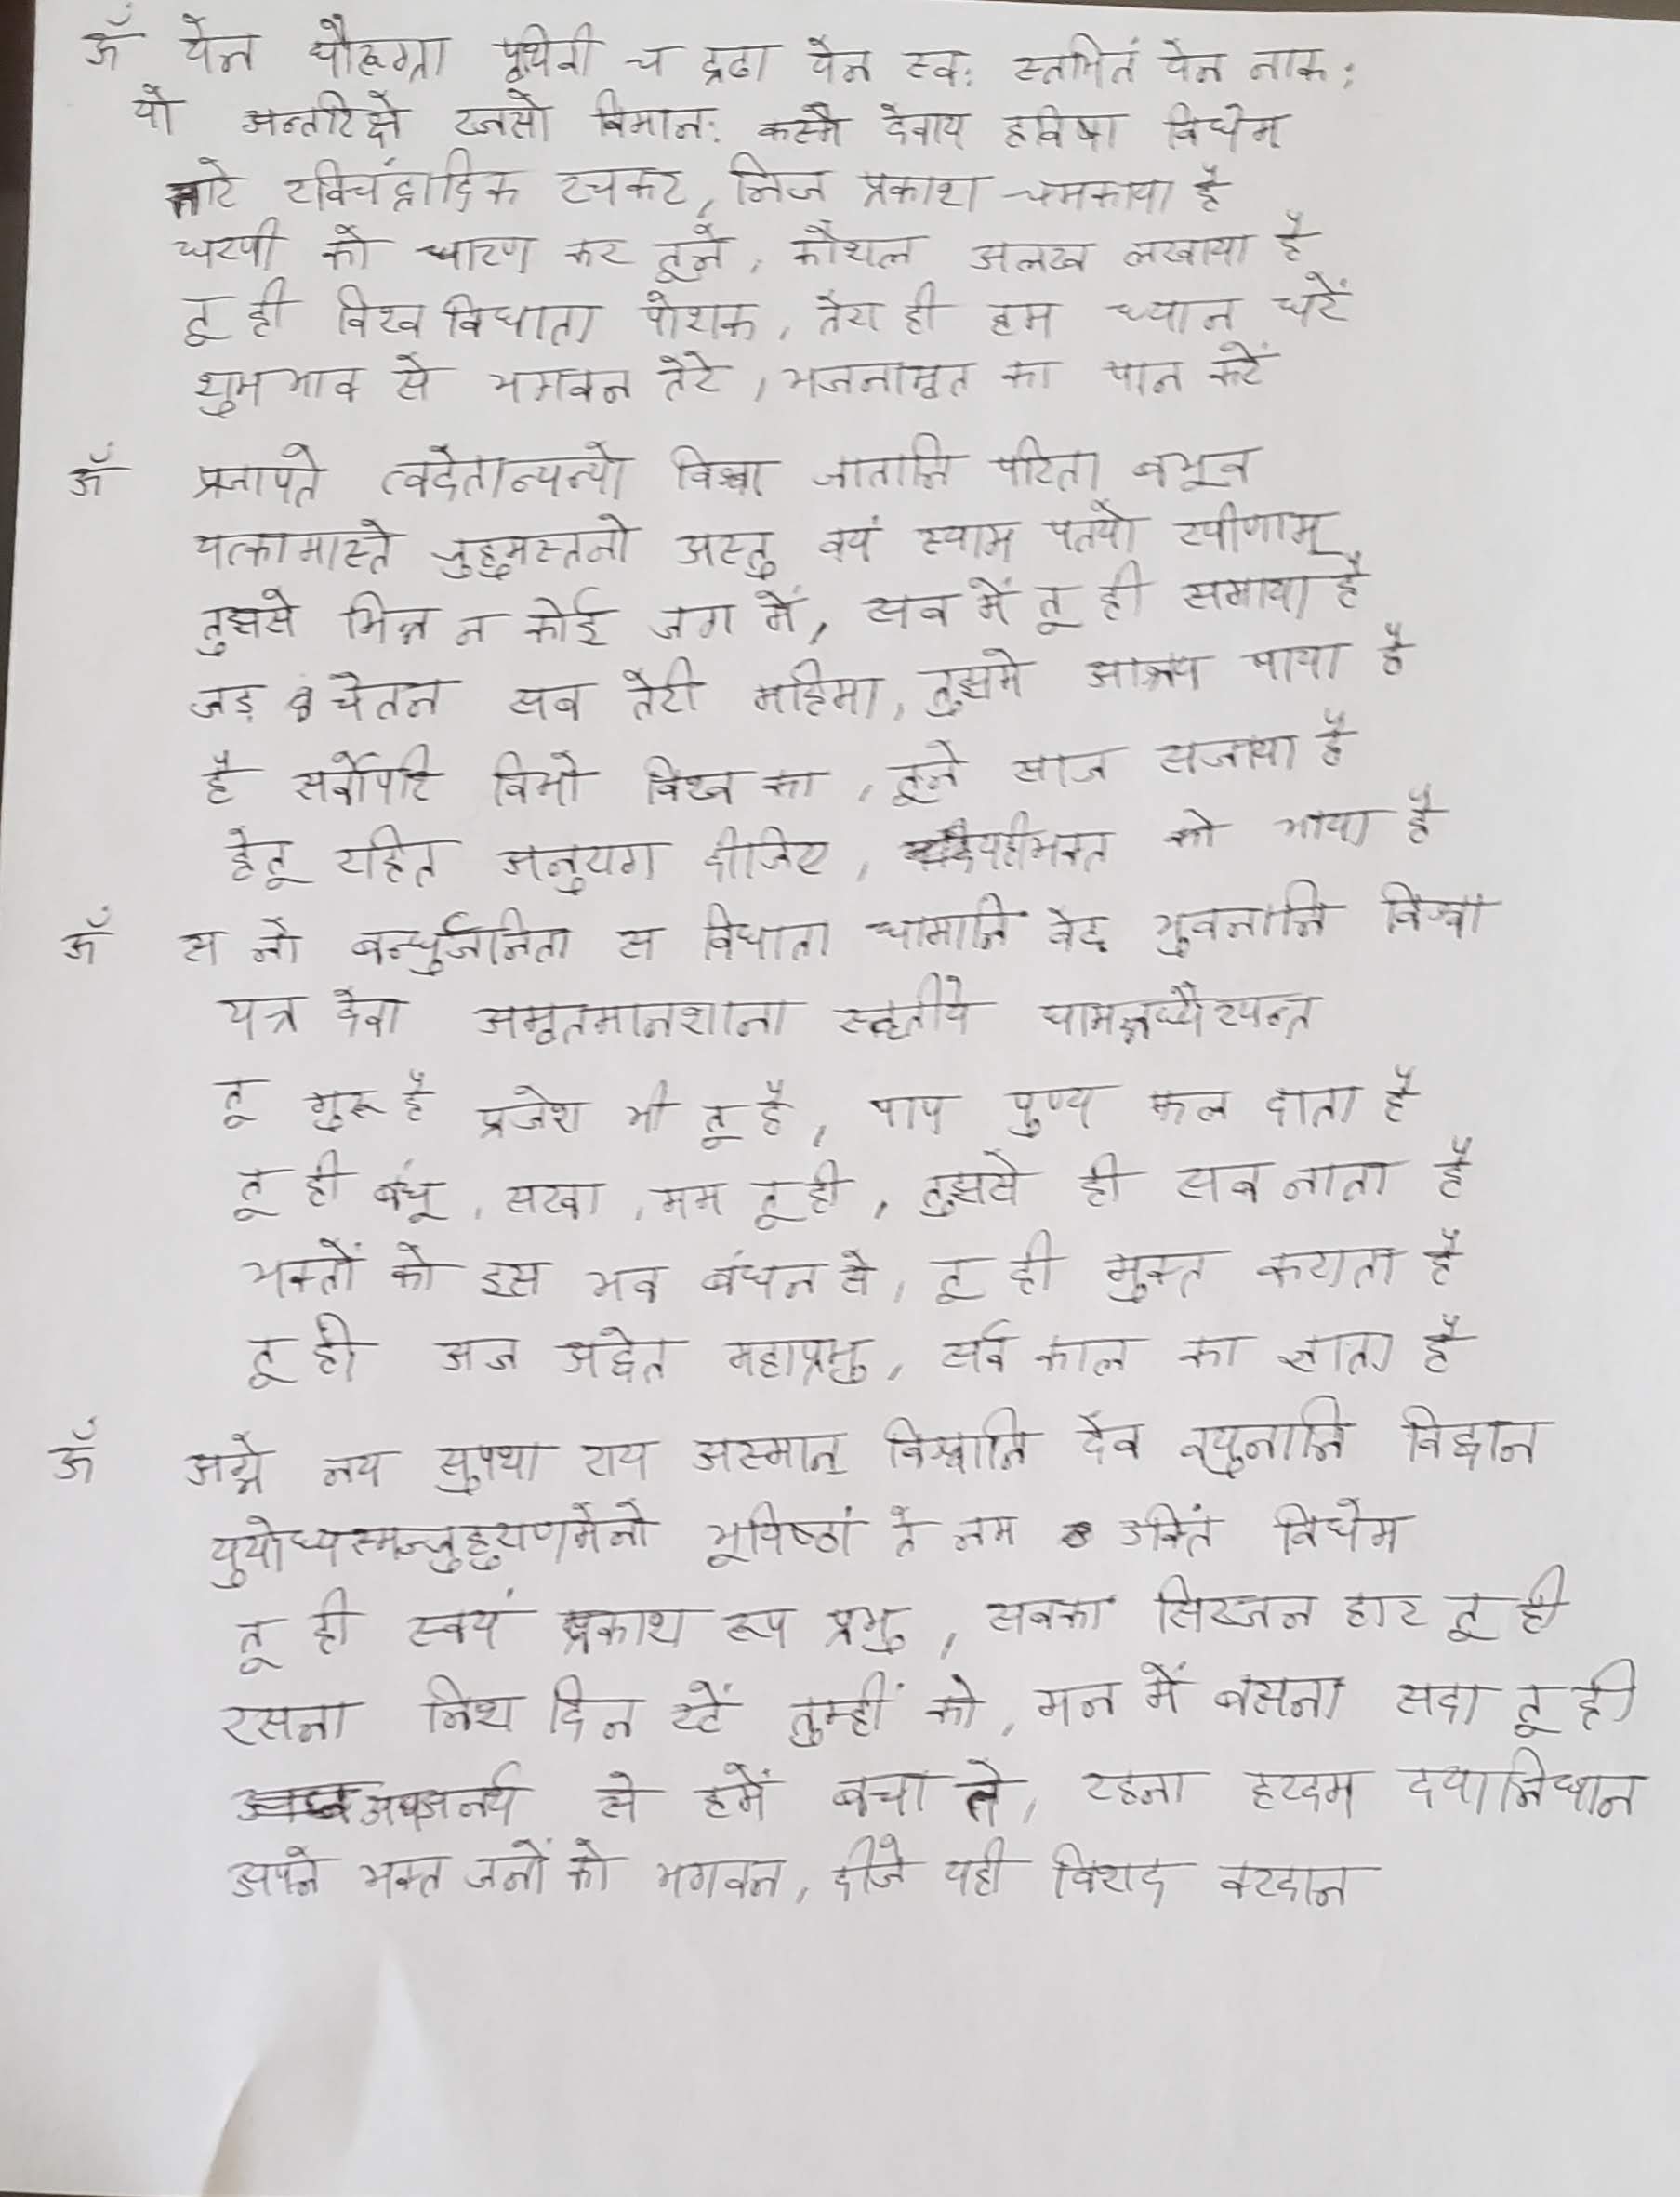 ॐ येन द्यौरुग्रा पृथिवी च द्रढा येन स्व: स्तभितं येन नाक:
यो अन्तरिक्षे रजसो विमान: कस्मै देवाय हविषा विधेम
तारे रविचंद्रादिक रचकर, निज प्रकाश चमकाया है
धरणी को धारण कर तूने, कौशल अलख लखाया है
तू ही विश्व विधाता पोशक, तेरा ही हम ध्यान धरें
शुभ भाव से भगवन तेरे, भजनामृत का पान करें
ॐ प्रजापते त्वदेतान्यन्यो विश्वा जातानि परिता बभूव
यत्कामास्ते जुहुमस्तनो अस्तु वयं स्याम पतयो रयीणाम्
तुझसे भिन्न न कोई जग में, सब में तू ही समाया है
जड़ चेतन सब तेरी महिमा, तुझमे आश्रय पाया है
है सर्वोपरि विभो विश्व का, तूने साज सजाया है
हेतू रहित अनुराग दीजिए, यही भक्त को भाया है
ॐ स नो बन्धुर्जनिता स विधाता धामानि वेद भुवनानि विश्वा
यत्र देवा अमृतमानशाना स्तृतीये धामन्नध्यैरयन्त
तू गुरू है प्रजेश भी तू है, पाप पुण्य फल दाता है
तू ही बंधू, सखा, मम तू ही, तुझसे ही सब नाता है
भक्तों को इस भव बंधन से, तू ही मुक्त कराता है
तू ही अज अद्वेत महाप्रभु, सर्व काल का ज्ञाता है
ॐ अग्ने नय सुपथा राय अस्मान् विश्वानि देव वयुनानि विद्वान
युयोध्यस्मज्जुहुराणमेनो भूयिष्ठां ते नम उक्तिं विधेम
तू ही स्वयं प्रकाश रूप प्रभु, सबका सिरजन हार तू ही
रसना निश दिन रटें तुम्हीं को, मन में बसना सदा तू ही
से हमें बचा ते, रहना हरदम दयानिधान
अपने भक्त जनों को भगवन, दीजे यही विशद वरदान